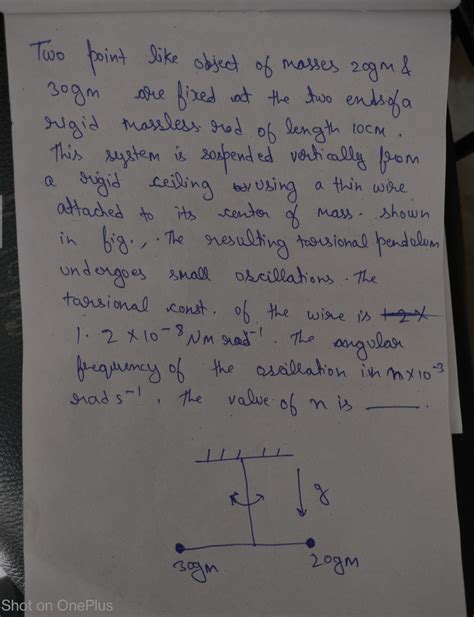 Two point like object of masses 20gm &
30gm are fixed at the two ends of a
rigid massless rod of length 10cm.
This system is suspended vertically from
a rigid ceiling using a thin wire
attached to its center of mass. shown
in fig., The resulting torsional pendulum
undergoes small oscillations. The
torsional const. of the wire is 1.2 X
1.2 × 10⁻⁸ Nm rad⁻¹. The angular
frequency of the oscillation in n×10⁻³
rad s⁻¹. The value of n is ____.
g
30gm 20gm
Shot on OnePlus